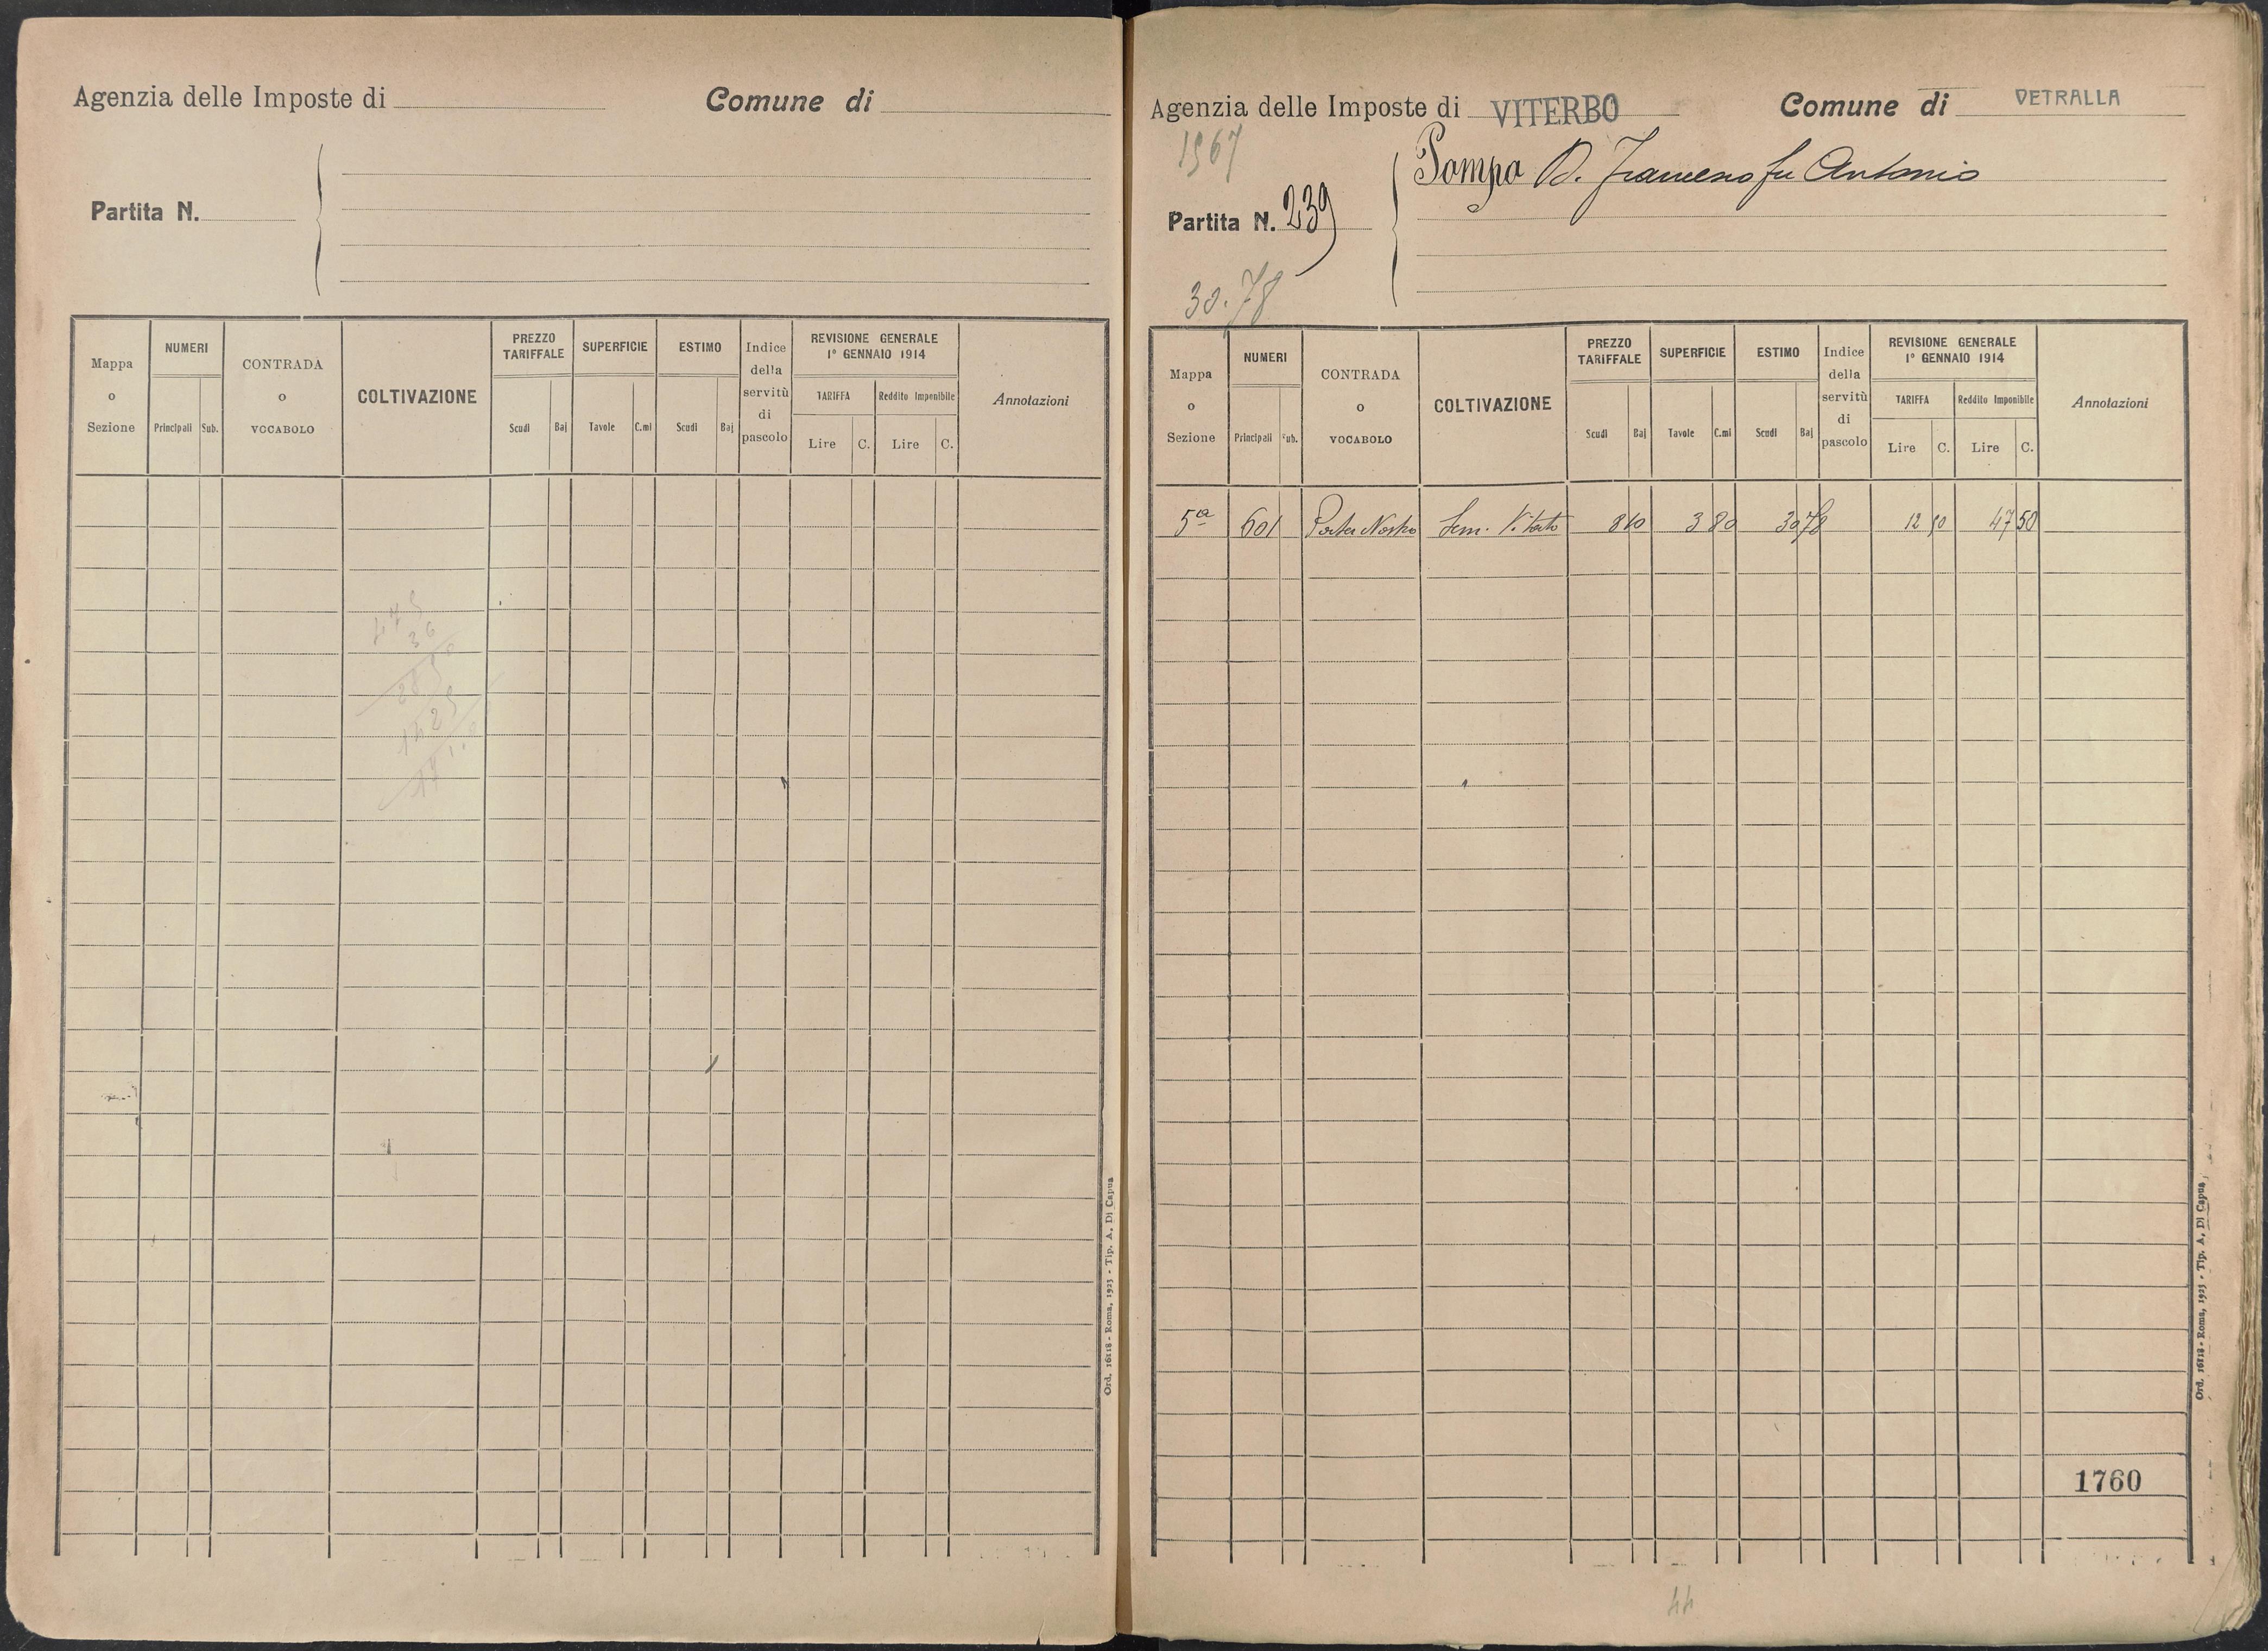 Agenzia delle Imposte di
Comune di
Partita N.
Mappa o Sezione
NUMERI
Principali
Sub.
CONTRADA o VOCABOLO
COLTIVAZIONE
PREZZO TARIFFALE
Scudi
Baj
SUPERFICIE
Tavole
C.mi
ESTIMO
Scudi
Baj
Indice della servitù di pascolo
REVISIONE GENERALE
1° GENNAIO 1914
TARIFFA
Reddito Imponibile
Lire
C.
Lire
C.
Annotazioni
Ord. 16118 - Roma, 1923 - Tip. A. Di Capua
Agenzia delle Imposte di VITERBO
Comune di VETRALLA
1967
Pompa D. Francesco fu Antonio
Partita N. 239
30.78
Mappa o Sezione
NUMERI
Principali
Sub.
CONTRADA o VOCABOLO
COLTIVAZIONE
PREZZO TARIFFALE
Scudi
Baj
SUPERFICIE
Tavole
C.mi
ESTIMO
Scudi
Baj
Indice della servitù di pascolo
REVISIONE GENERALE
1° GENNAIO 1914
TARIFFA
Reddito Imponibile
Lire
C.
Lire
C.
Annotazioni
5a 601 Pater Nostro Sem. Vitato 8 10 3 80 30 78 12 50 47 50
1760
44
Ord. 16118 - Roma, 1923 - Tip. A. Di Capua